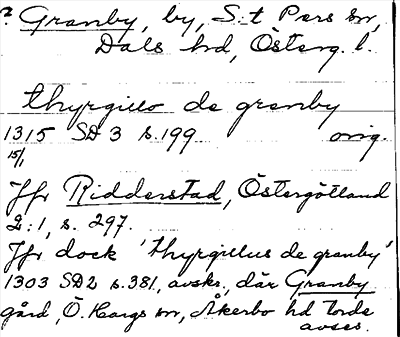 ? Granby, by, S:t Pers sn,
Dals hd, Österg. l.
thyrgillo de granby
1315 SD 3 s. 199 orig.
15/1
Jfr Ridderstad, Östergötland
2:1, s. 297.
Jfr dock 'thyrgillus de granby'
1303 SD2 s. 381, avskr., där Granby
gård, Ö. Hargs sn, Åkerbo hd torde
avses.